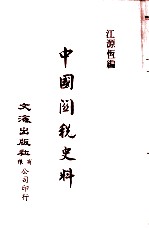 江源恆編
中國関稅史料
文海出版社有限公司印行